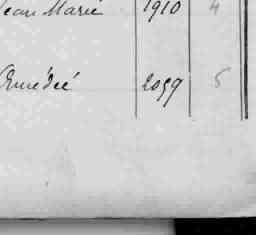 Jean Marie 1910 4
Amédée 2059 5